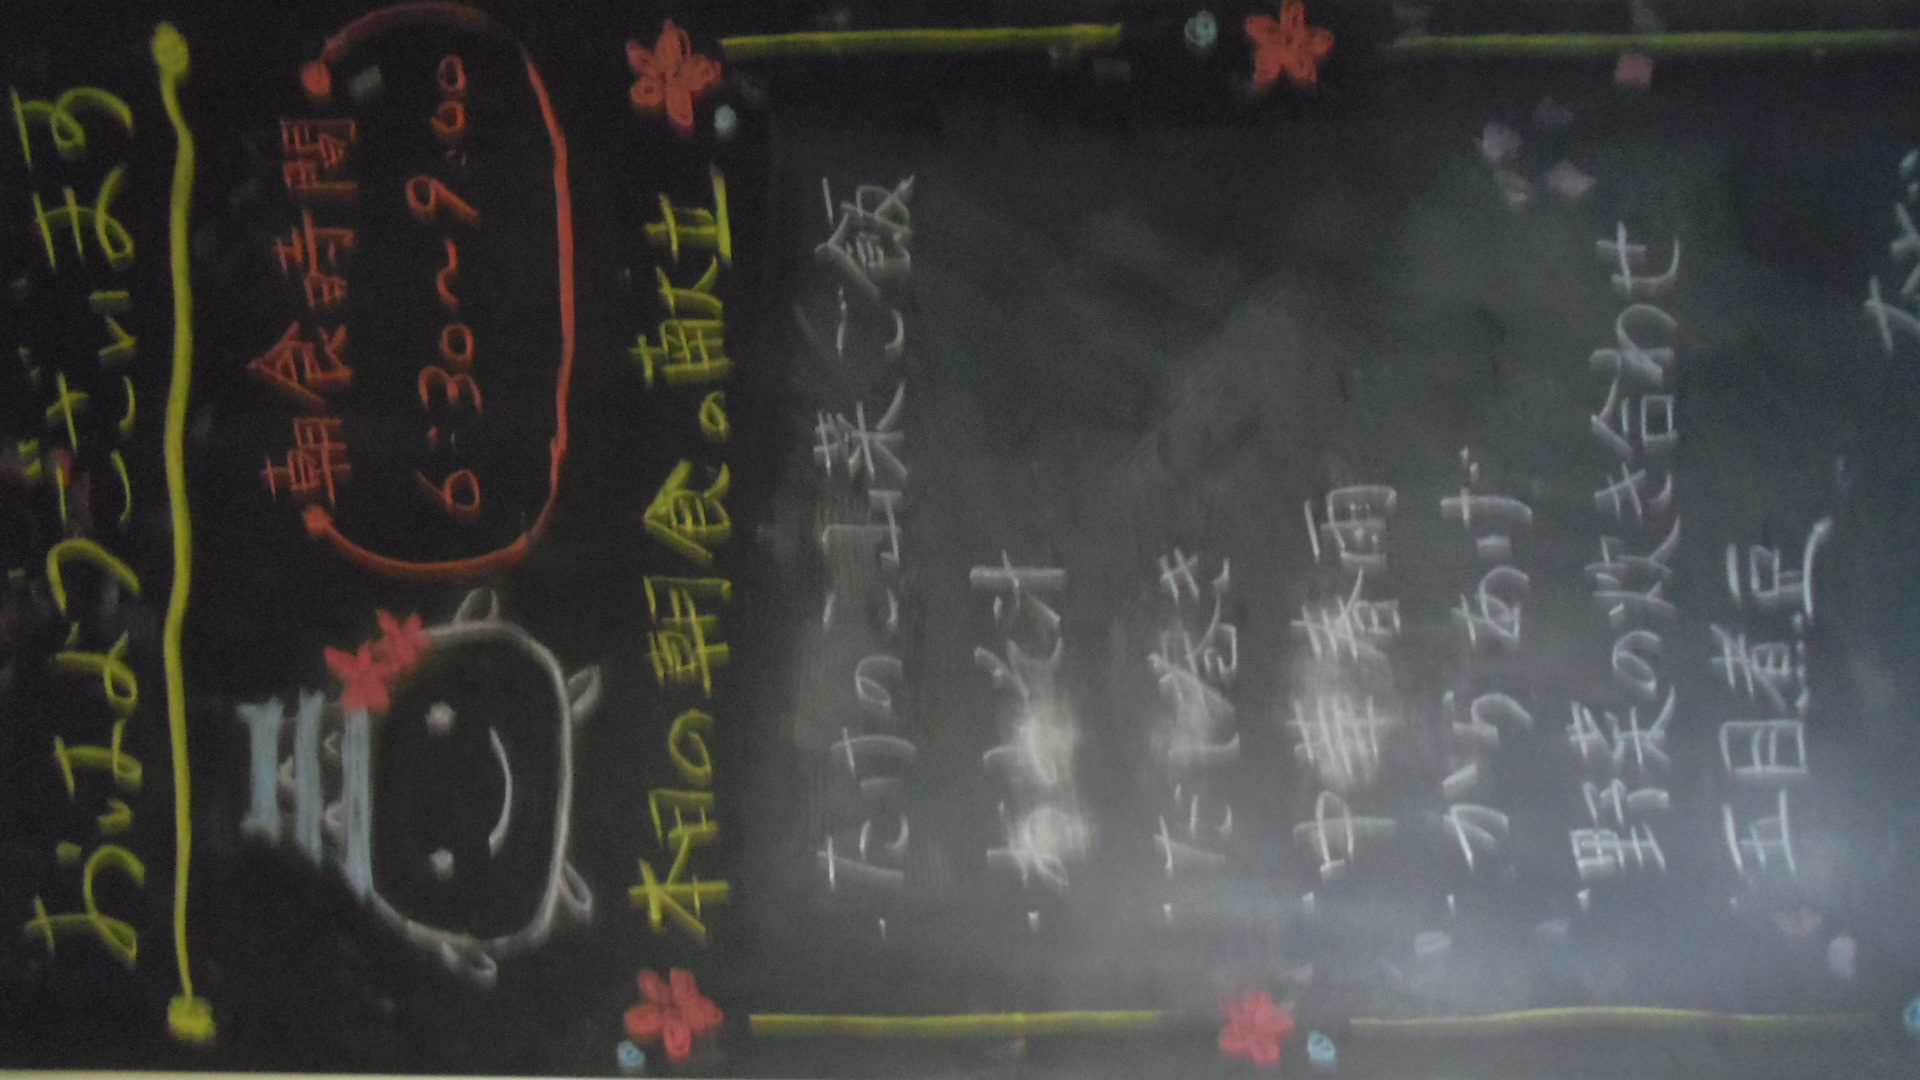 おはようございます
朝食時間
6:30～9:00
本日の朝食の献立
・たけのこ山菜ご飯
・おみそ汁
・だし巻き
・中華春雨
・からあげ
・野菜の炊き合わせ
・五目煮豆
など